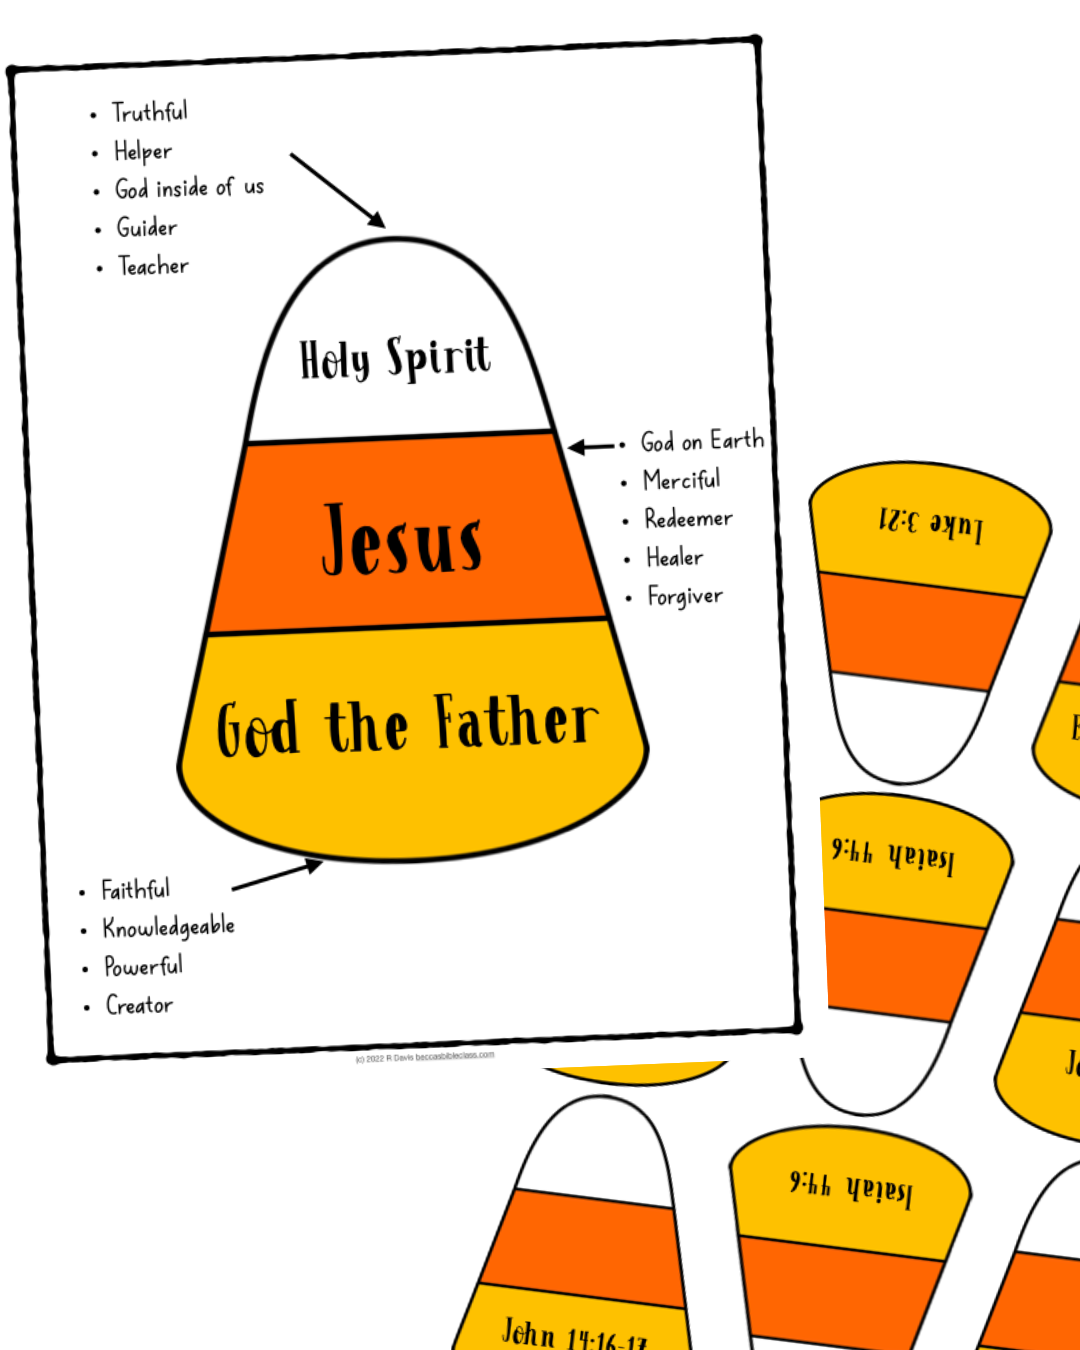 • Truthful
• Helper
• God inside of us
• Guider
• Teacher
Holy Spirit
• God on Earth
• Merciful
• Redeemer
• Healer
• Forgiver
Jesus
God the Father
• Faithful
• Knowledgeable
• Powerful
• Creator
(c) 2022 R Davis beccasbibleclass.com
Luke 3:21
E
Isaiah 44:6
Je
Isaiah 44:6
John 14:16-17